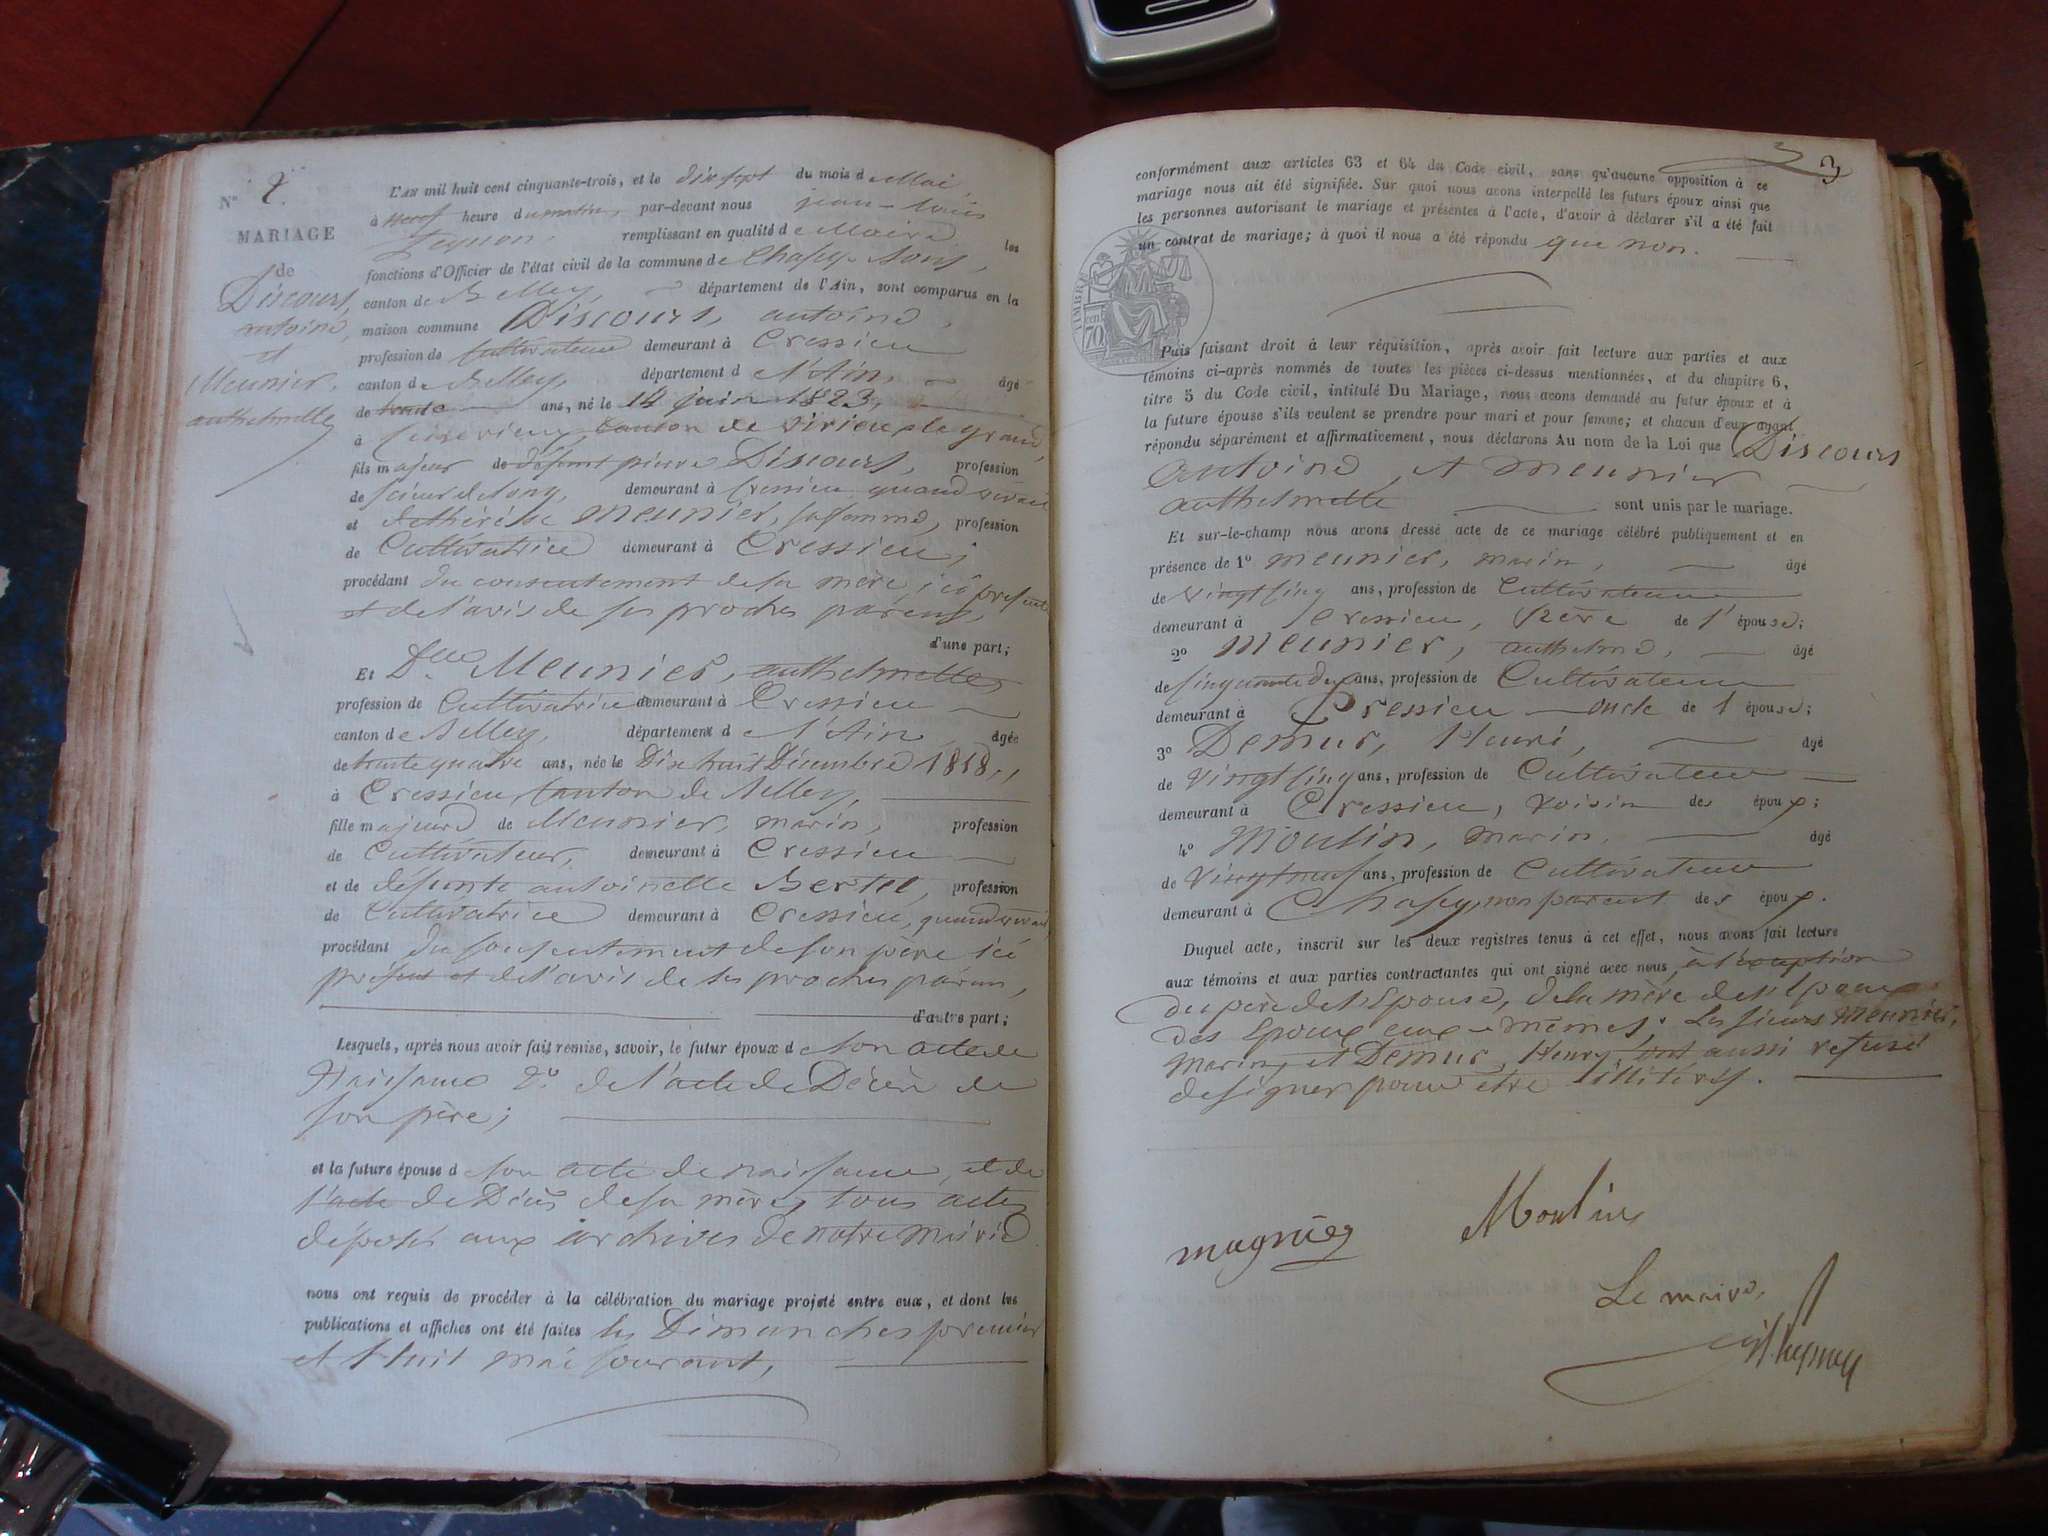 N° 2.
MARIAGE
de
Discours,
antoine,
et
Meunier,
anthelmette
L'AN mil huit cent cinquante-trois, et le dix sept du mois de Mai,
à neuf heure du matin, par-devant nous jean-louis
Peysson, remplissant en qualité de Maire les
fonctions d'Officier de l'état civil de la commune de Chasey-Bons,
canton de Belley, département de l'Ain, sont comparus en la
maison commune Discours, antoine,
profession de Cultivateur demeurant à Cressieu
canton de Belley, département de l'Ain, âgé
de trente ans, né le 14 juin 1823,
à canton de Virieu le grand,
fils majeur de défunt pierre Discours, profession
de scieur de long, demeurant à Cressieu quand vivait
et de thérèse Meunier, sa femme, profession
de Cultivatrice demeurant à Cressieu;
procédant du consentement de sa mère, ici présente
et de l'avis de ses proches parens,
d'une part;
Et Dlle Meunier, anthelmette
profession de Cultivatrice demeurant à Cressieu
canton de Belley, département de l'Ain, âgée
de trente quatre ans, née le Dix huit Décembre 1818,
à Cressieu, Canton de Belley,
fille majeure de Meunier, marin, profession
de Cultivateur, demeurant à Cressieu
et de défunte antoinette Bertet, profession
de Cultivatrice demeurant à Cressieu, quand vivait,
procédant du consentement de son père ici
présent et de l'avis de ses proches parens,
d'autre part;
Lesquels, après nous avoir fait remise, savoir, le futur époux de son acte de
Naissance 2° de l'acte de Décès de
son père;
et la future épouse de son acte de naissance, et de
l'acte de Décès de sa mère, tous actes
déposés aux archives de notre Mairie
nous ont requis de procéder à la célébration du mariage projeté entre eux, et dont les
publications et affiches ont été faites les Dimanches premier
et huit mai courant,
3
conformément aux articles 63 et 64 du Code civil, sans qu'aucune opposition à ce
mariage nous ait été signifiée. Sur quoi nous avons interpellé les futurs époux ainsi que
les personnes autorisant le mariage et présentes à l'acte, d'avoir à déclarer s'il a été fait
un contrat de mariage; à quoi il nous a été répondu que non.
TIMBRE
70 cent
Puis faisant droit à leur réquisition, après avoir fait lecture aux parties et aux
témoins ci-après nommés de toutes les pièces ci-dessus mentionnées, et du chapitre 6,
titre 5 du Code civil, intitulé Du Mariage, nous avons demandé au futur époux et à
la future épouse s'ils veulent se prendre pour mari et pour femme; et chacun d'eux ayant
répondu séparément et affirmativement, nous déclarons Au nom de la Loi que Discours
antoine, et Meunier
anthelmette sont unis par le mariage.
Et sur-le-champ nous avons dressé acte de ce mariage célébré publiquement et en
présence de 1° Meunier, marin, âgé
de vingt cinq ans, profession de Cultivateur
demeurant à Cressieu, frère de l'épouse;
2° Meunier, anthelme, âgé
de cinquante deux ans, profession de Cultivateur
demeurant à Cressieu oncle de l'épouse;
3° Demur, Henri, âgé
de vingt cinq ans, profession de Cultivateur
demeurant à Cressieu, voisin des époux;
4° Moulin, marin, âgé
de vingt neuf ans, profession de Cultivateur
demeurant à Chasey, non parent des époux.
Duquel acte, inscrit sur les deux registres tenus à cet effet, nous avons fait lecture
aux témoins et aux parties contractantes qui ont signé avec nous, à l'exception
du père de l'Epouse, de la mère de l'Epoux
des Epoux eux-mêmes. Les sieurs Meunier,
Marin, et Demur, Henry, ont aussi refusé
de signer pour être illitérés.
Moulin
Le maire,